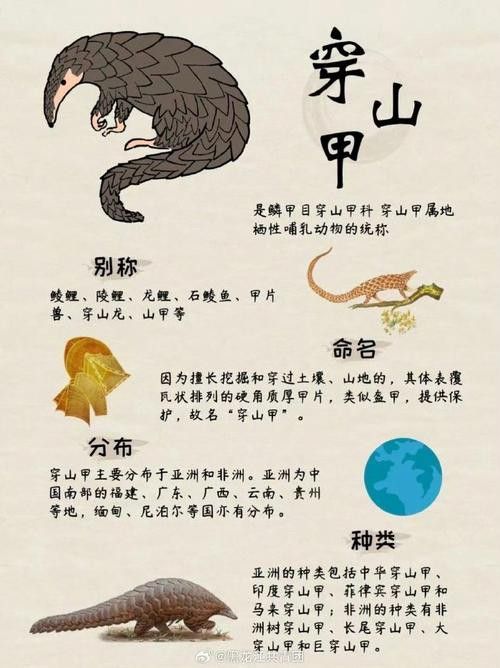 穿山甲
是鳞甲目穿山甲科 穿山甲属地
栖性哺乳动物的统称
别称
鲮鲤、陵鲤、龙鲤、石鲮鱼、甲片
兽、穿山龙、山甲等
命名
因为擅长挖掘和穿过土壤、山地的，其体表覆
瓦状排列的硬角质厚甲片，类似盔甲，提供保
护，故名“穿山甲”。
分布
穿山甲主要分布于亚洲和非洲。亚洲为中
国南部的福建、广东、广西、云南、贵州
等地，缅甸、尼泊尔等国亦有分布。
种类
亚洲的种类包括中华穿山甲、
印度穿山甲、菲律宾穿山甲和
马来穿山甲；非洲的种类有非
洲树穿山甲、长尾穿山甲、大
穿山甲和巨穿山甲。
@黑龙江共青团